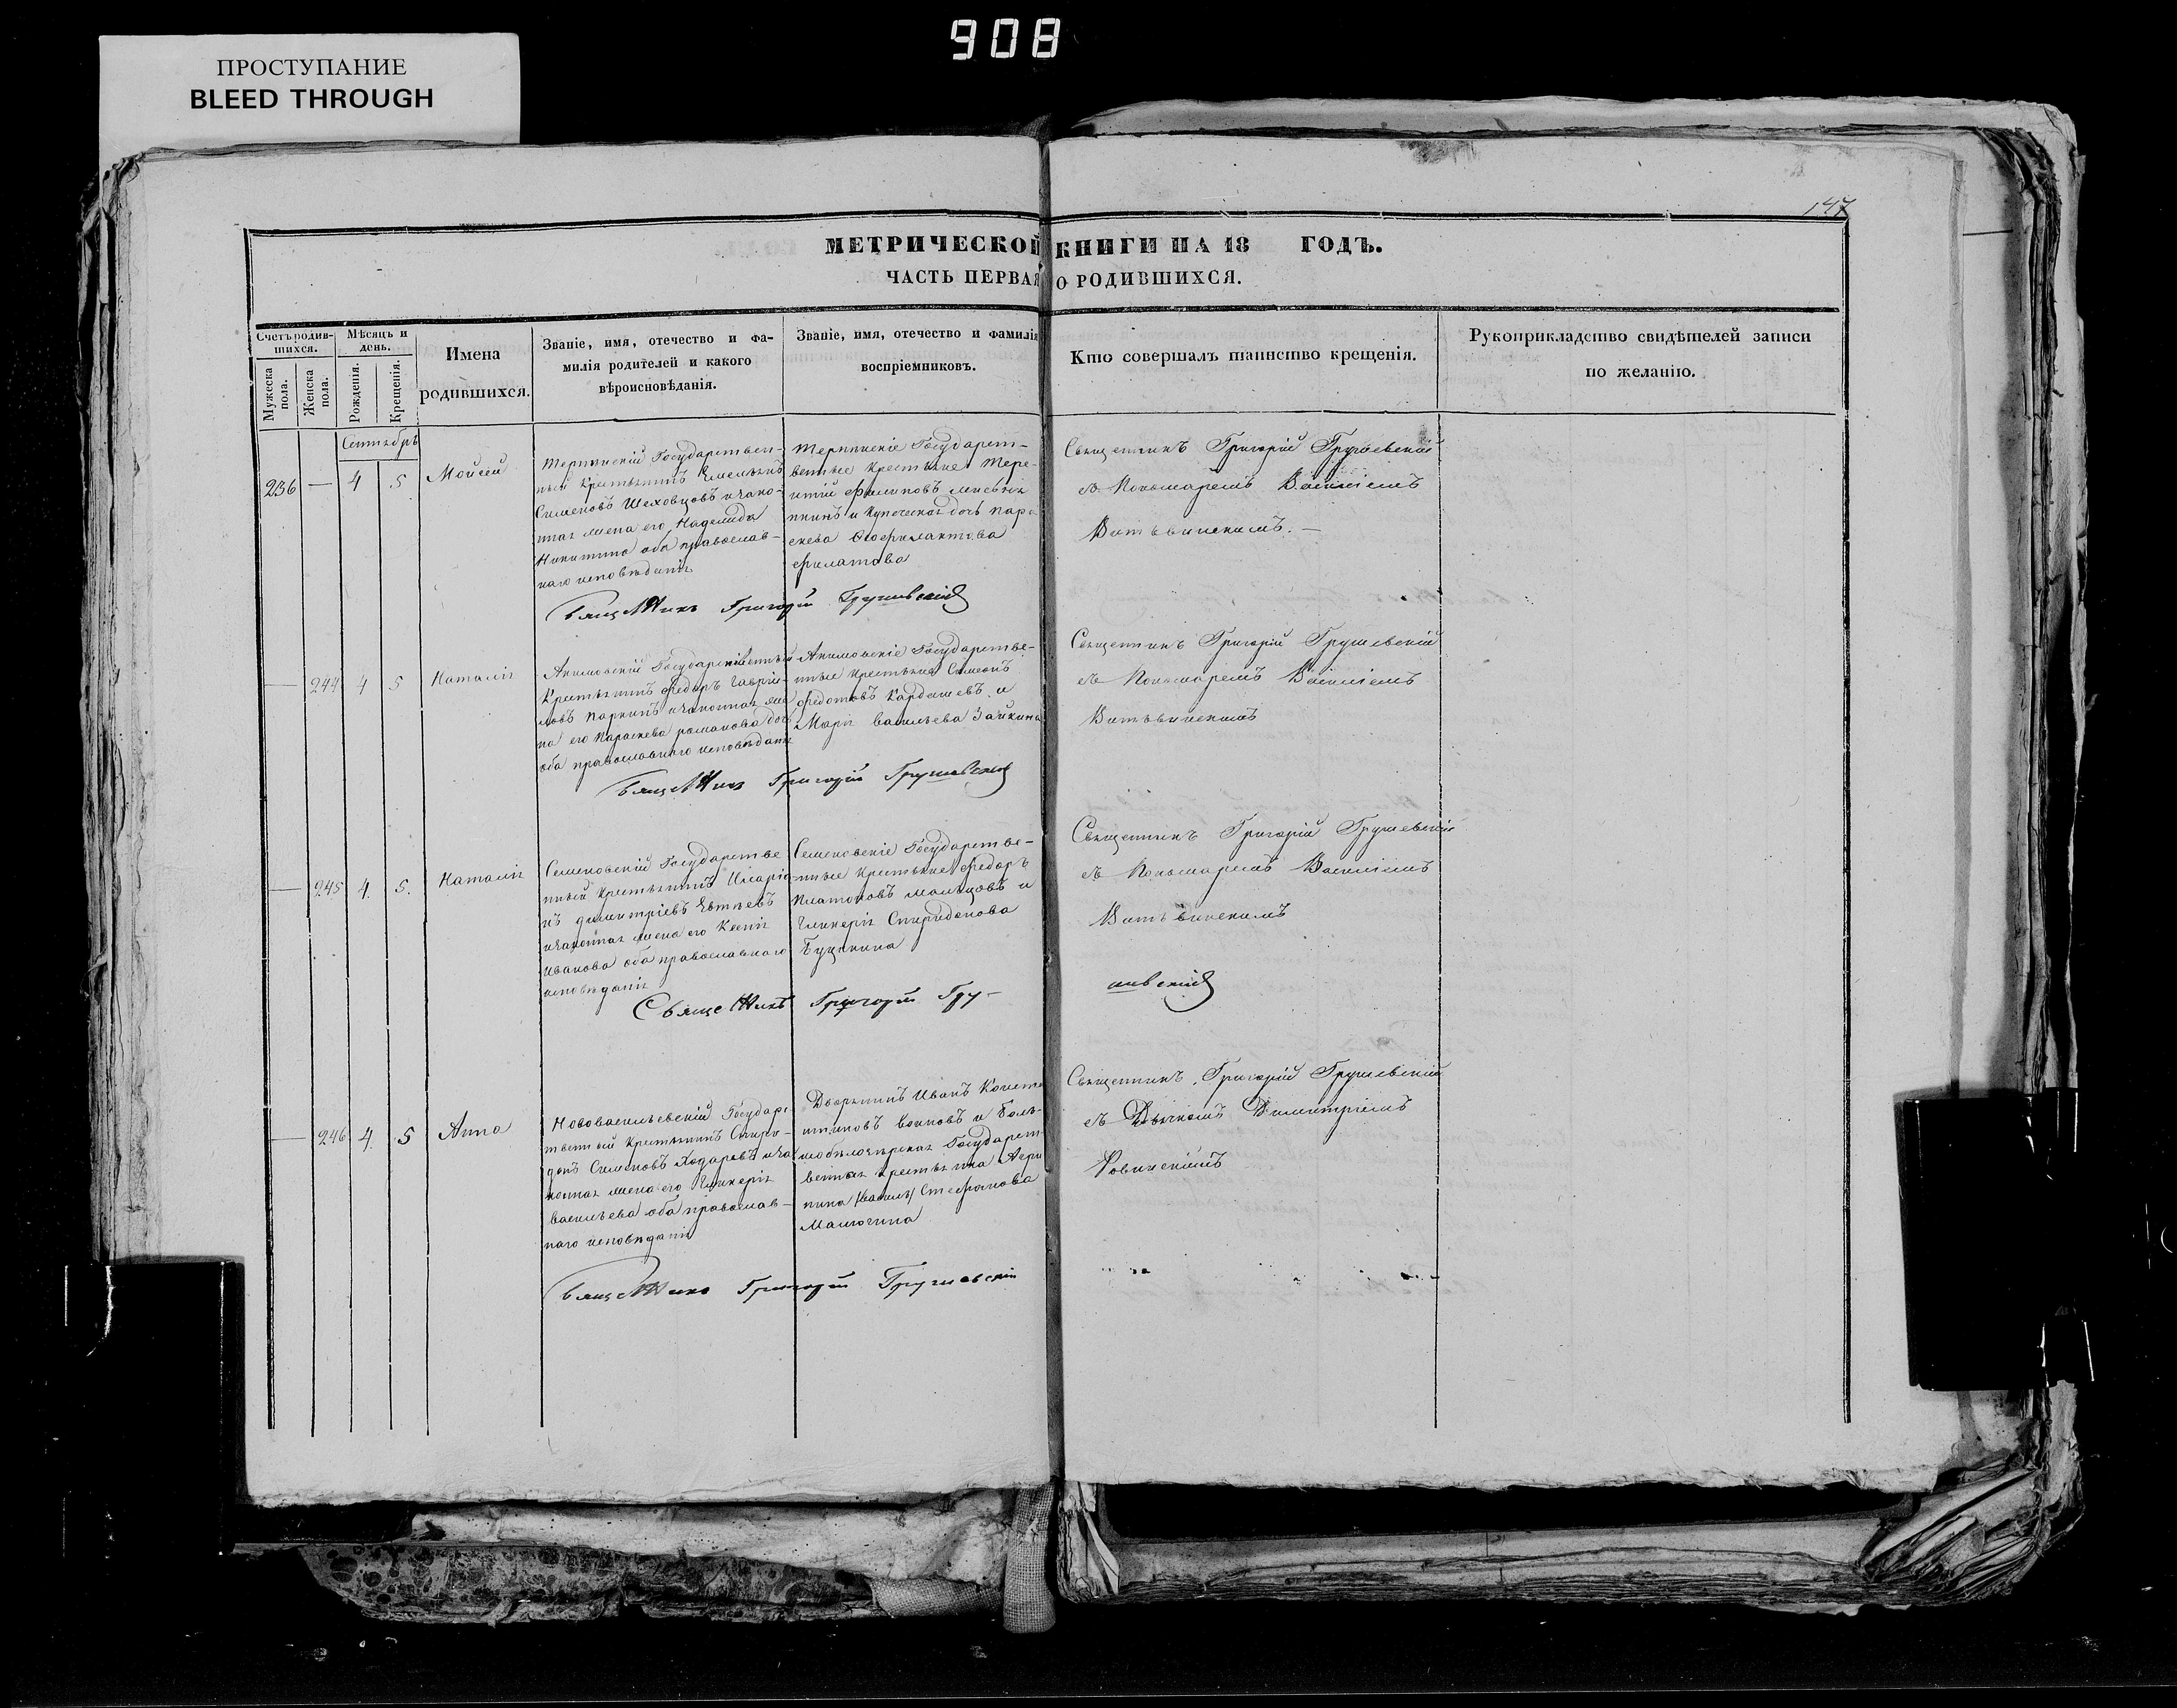 908
ПРОСТУПАНИЕ
BLEED THROUGH
147
МЕТРИЧЕСКОЙ КНИГИ НА 18 ГОДЪ.
ЧАСТЬ ПЕРВАЯ О РОДИВШИХСЯ.
Счетъ родив-
шихся.
Мужеска
пола.
Женска
пола.
Мѣсяцъ и
день.
Рожденія.
Крещенія.
Имена
родившихся.
Званіе, имя, отечество и фа-
милія родителей и какого
вѣроисповѣданія.
Званіе, имя, отечество и фамилія
воспріемниковъ.
Кто совершалъ таинство крещенія.
Рукоприкладство свидѣтелей записи
по желанію.
Сентябрь
236 — 4 5
Мойсей
Терпинскій Государствен-
ный крестьянинъ Емельянъ
Симеоновъ Шеховцовъ и зако-
нная жена его Надежда
Никитина оба православ-
наго исповѣданія
Терпинскіе Государст-
венные крестьяне Тере-
нтій Филиповъ
и Купеческая дочь Пара
скева Феофилактова
Филатова
Священникъ Григорій Грушевскій
съ Пономаремъ Василіемъ
Витвинскимъ. —
Священникъ Григорій Грушевскій
— 244 4 5
Наталія
Акимовскій Государственный
Крестьянинъ Федоръ Гаврiи-
ловъ Паркинъ и законная же
на его Параскева Романова
оба православнаго исповѣданія
Акимовскіе Государстве-
нные крестьяне Симеонъ
Федотовъ Кардашевъ и
Марія Васильева Зайкина
Священникъ Григорій Грушевскій
съ Пономаремъ Василіемъ
Витвинскимъ
Священникъ Григорій Грушевскій
— 245 4 5.
Наталія
Семеновскій Государстве
нный крестьянинъ Иларіо
нъ Димитріевъ Евтѣевъ
и законная жена его Ксенія
Иванова оба православнаго
исповѣданія
Семеновскіе Государстве-
нные крестьяне Федоръ
Платоновъ Мальцовъ и
Гликерія Спиридонова
Бущкина
Священникъ Григорій Грушевскій
съ Пономаремъ Василіемъ
Витвинскимъ
Священникъ Григорій Гру-
шевскій
— 246 4 5
Анна
Нововасильевскій Государс-
твенный крестьянинъ Спири-
донъ Симеоновъ Ходаревъ и за
конная жена его Гликерія
Васильева оба православ-
наго исповѣданія
Дворянинъ Иванъ Конста
нтиновъ Воиновъ и Боль-
шобѣлозерская Государст
венная крестьянка Агри
пина Стефанова
Малюгина
Священникъ Григорій Грушевскій
съ Дьячкомъ Димитріемъ
Ровинскимъ
Священникъ Григорій Грушевскій